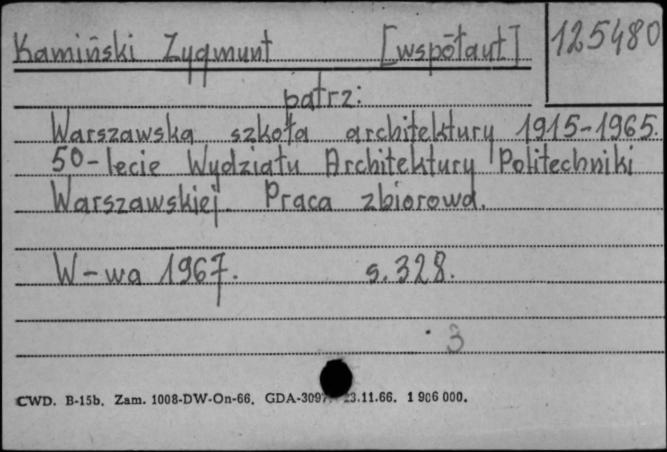 Kamiński Zygmunt [współaut] 125480
patrz:
Warszawska szkoła architektury 1915-1965.
50-lecie Wydziału Architektury Politechniki
Warszawskiej. Praca zbiorowa.
W-wa 1967. s. 328.
3
CWD. B-15b. Zam. 1008-DW-On-66. GDA-309 23.11.66. 1 906 000.